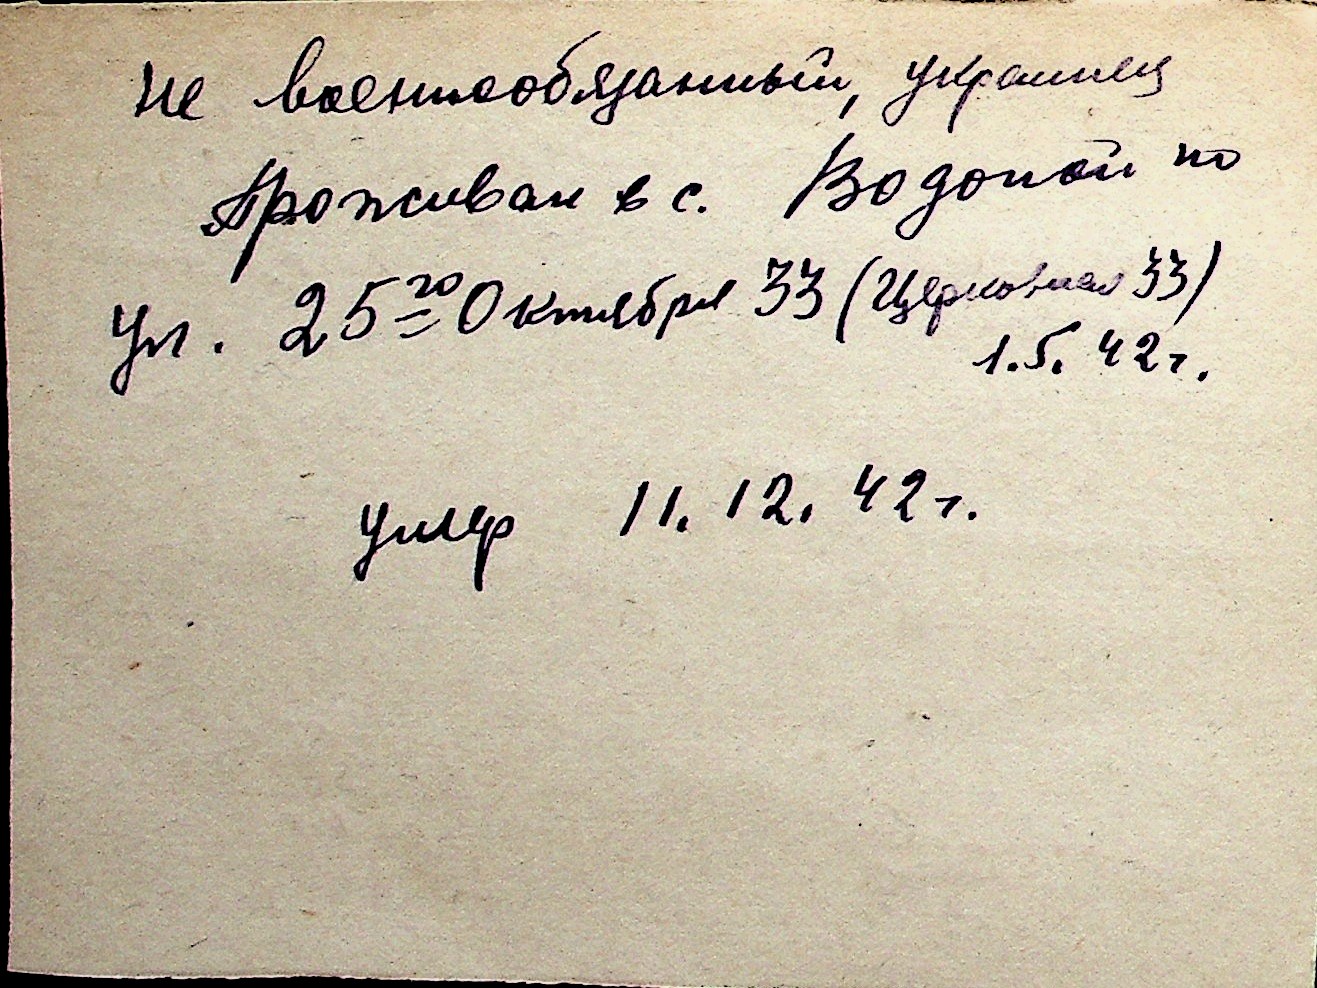 не военнообязанный, украинец
Проживал в с. Водопой по
ул. 25го Октября 33 (Церковная 33)
1.5.42г.
умер 11.12.42г.